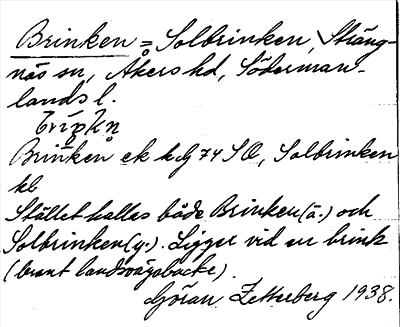 Brinken = Solbrinken, Sträng-
näs sn, Åkers hd, Söderman-
lands l.
Brinken ek bl 74 SO, Solbrinken
kbl
Stället kallas både Brinken (ä.) och
Solbrinken (y.). Ligger vid en brink
(brant landsvägsbacke).
Göran Zetterberg 1938.